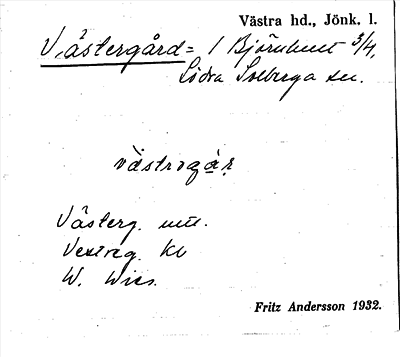 Västra hd., Jönk. l.
Västergård = 1 Björnhult 3/4,
Södra Solberga sn.
västrogår
Västerg. mtl.
Vestreg. Kb
W.
Fritz Andersson 1932.